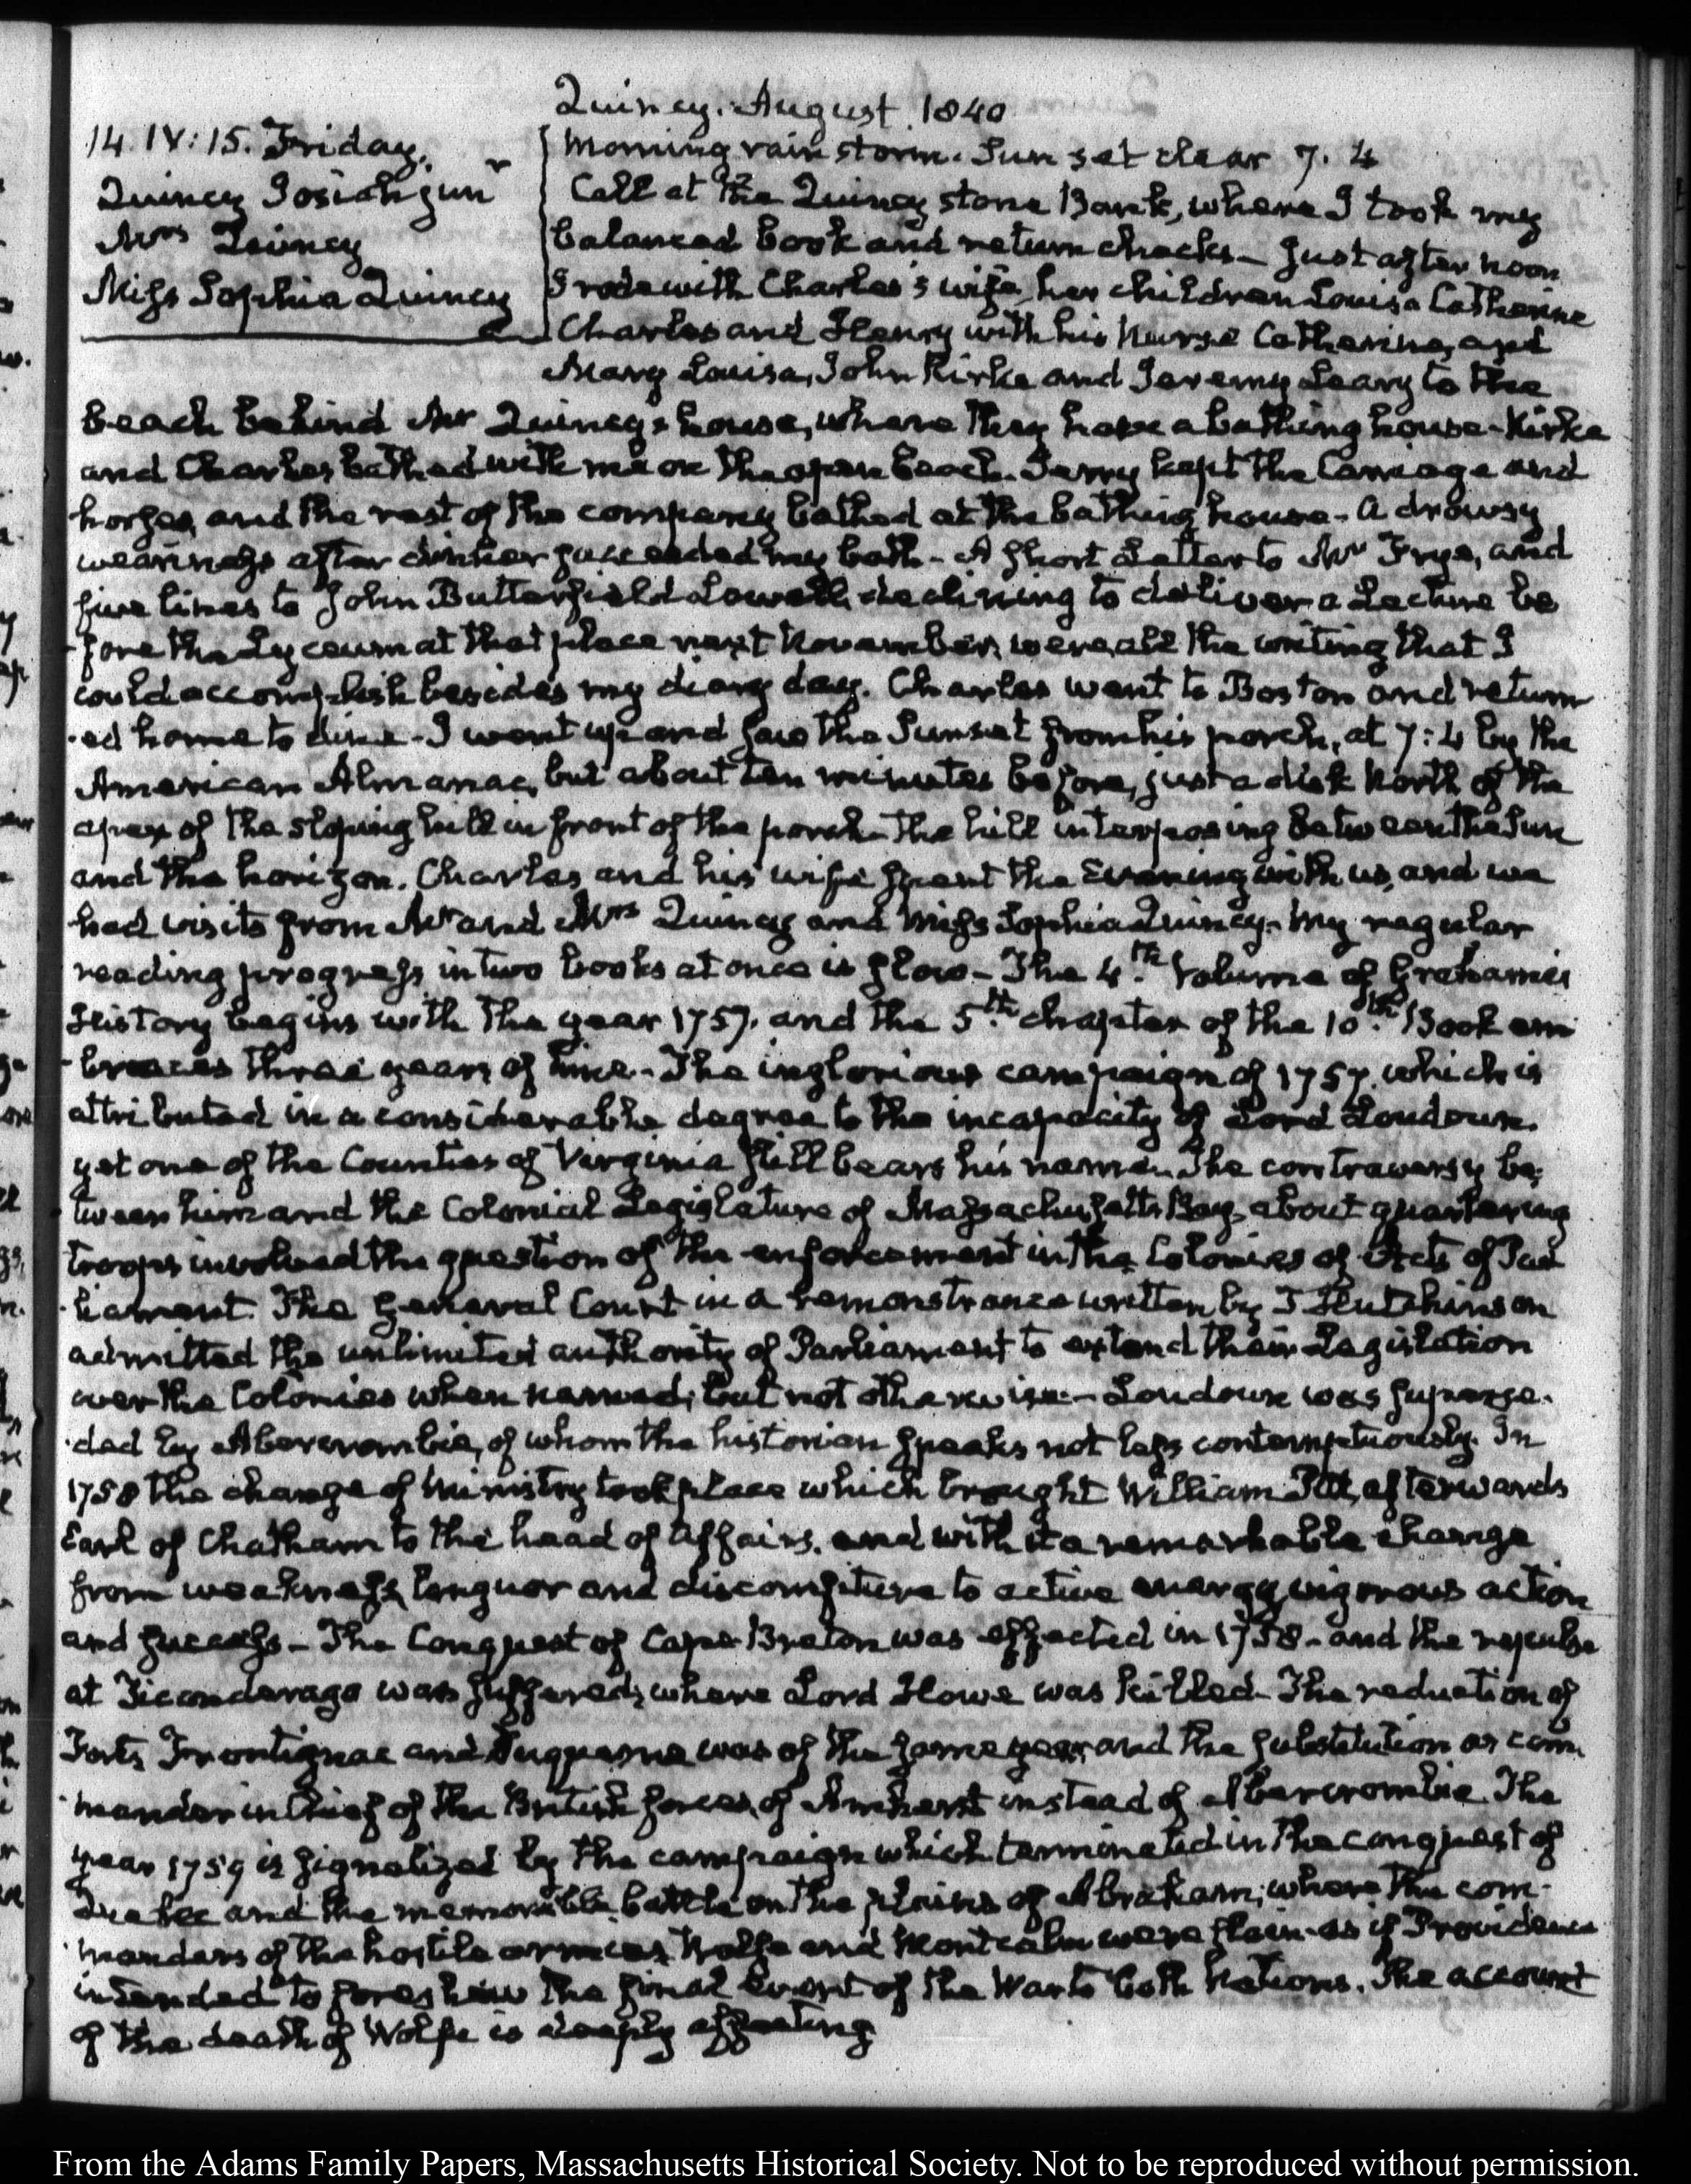 Quincy. August 1840
14. IV:15. Friday.
Quincy Josiah junr
Mrs Quincy
Miss Sophia Quincy
Morning rain storm. Sun set clear 7. 4
Call at the Quincy stone Bank, where I took my
balanced book and return checks - Just after noon
I rode with Charles's wife, her children Louisa Catherine
Charles and Henry with his Nurse Catherine, and
Mary Louisa, John Kirke and Jeremy Leary to the
beach behind Mr Quincy's house, where they have a bathing house - Kirke
and Charles bathed with me on the open beach. Jerry kept the Carriage and
horses, and the rest of the company bathed at the bathing house - A drowsy
weariness after dinner succeeded my bath - A short Letter to Mr Frye, and
five lines to John Butterfield Lowell, declining to deliver a Lecture be
fore the Lyceum at that place next November, were all the writing that I
could accomplish besides my diary day. Charles went to Boston and return
-ed home to dine - I went up and saw the Sunset from his porch, at 7:4 by the
American Almanac, but about ten minutes before, just a disk North of the
apex of the sloping hill in front of the porch - the hill interposing between the Sun
and the horizon. Charles and his wife spent the Evening with us, and we
had visits from Mr and Mrs Quincy and Miss Sophia Quincy. My regular
reading progress in two books at once is slow - The 4.th Volume of Grahame's
History begins with the year 1757. and the 5.th chapter of the 10.th Book em
-braces three years of time - The inglorious campaign of 1757. which is
attributed in a considerable degree to the incapacity of Lord Loudoun.
yet one of the Counties of Virginia still bears his name. The controversy be-
tween him and the Colonial Legislature of Massachusetts Bay, about quartering
troops involved the question of the enforcement in the Colonies of Acts of Par
-liament. The General Court in a remonstrance written by T Hutchinson
admitted the unlimited authority of Parliament to extend their Legislation
over the Colonies when named; but not otherwise - Loudoun was superse-
-ded by Abercrombie, of whom the historian speaks not less contemptuously. In
1758 the change of Ministry took place which brought William Pitt, afterwards
Earl of Chatham to the head of Affairs. and with it a remarkable change
from weakness, languor and discomfiture to active energy, vigorous action
and success - The Conquest of Cape Breton was effected in 1758 - and the repulse
at Ticonderago was suffered, where Lord Howe was killed - The reduction of
Forts Frontignac and Duquesne was of the same year, and the substitution as com
-mander in Chief of the British forces, of Amherst instead of Abercrombie. The
year 1759 is signalized by the campaign which terminated in the conquest of
Quebec and the memorable battle on the plains of Abraham; where the com-
-manders of the hostile armies, Wolfe and Montcalm were slain - as if Providence
intended to foreshew the final Event of the War to both Nations. The account
of the death of Wolfe is deeply affecting
From the Adams Family Papers, Massachusetts Historical Society. Not to be reproduced without permission.